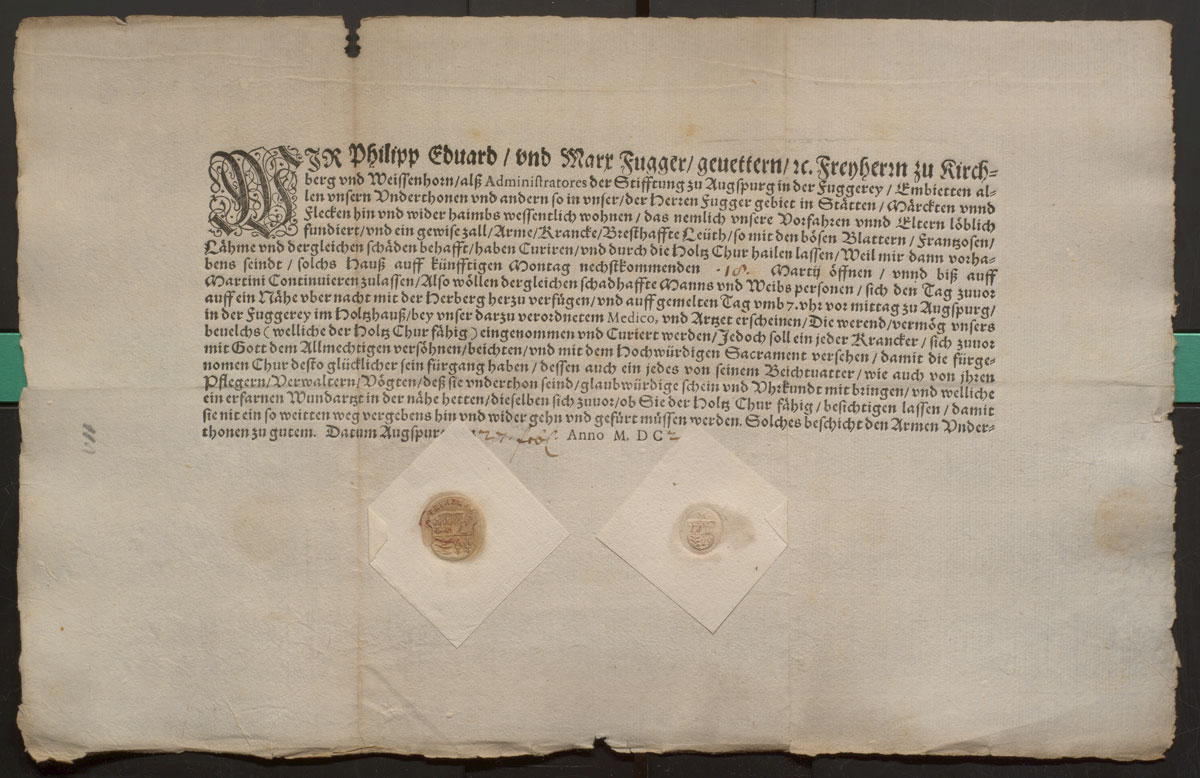 WJR Philipp Eduard / vnd Marx Fugger / geuettern / ꝛc. Freyherrn zu Kirch-
berg vnd Weissenhorn / alß Administratores der Stifftung zu Augspurg in der Fuggerey / Embietten al-
len vnsern Vnderthonen vnd andern so in vnser / der Herren Fugger gebiet in Stätten / Märckten vnnd
Flecken hin vnd wider haimbs wessentlich wohnen / das nemlich vnsere Vorfahren vnnd Eltern löblich
fundiert / vnd ein gewise zall / Arme / Krancke / Bresthaffte Leüth / so mit den bösen Blattern / Frantzosen /
Lähme vnd dergleichen schäden behafft / haben Curiren / vnd durch die Holtz Chur hailen lassen / Weil mir dann vorha-
bens seindt / solchs Hauß auff künfftigen Montag nechstkommenden ·18. Martij öffnen / vnnd biß auff
Martini Continuieren zulassen / Also wöllen dergleichen schadhaffte Manns vnd Weibs personen / sich den Tag zuuor
auff ein Nähe vber nacht mit der Herberg herzu verfügen / vnd auff gemelten Tag vmb 7. vhr vor mittag zu Augspurg /
in der Fuggerey im Holtzhauß / bey vnser darzu verordnetem Medico, vnd Artzet erscheinen / Die werend / vermög vnsers
beuelchs ( welliche der Holtz Chur fähig ) eingenommen vnd Curiert werden / Jedoch soll ein jeder Krancker / sich zuuor
mit Gott dem Allmechtigen versöhnen / beichten / vnd mit dem Hochwürdigen Sacrament versehen / damit die fürge-
nomen Chur desto glücklicher sein fürgang haben / dessen auch ein jedes von seinem Beichtuatter / wie auch von jhren
Pflegern / Verwaltern / Vögten / deß sie vnderthon seind / glaubwürdige schein vnd Vhrkundt mit bringen / vnd welliche
ein erfarnen Wundartzt in der nähe hetten / dieselben sich zuuor / ob Sie der Holtz Chur fähig / besichtigen lassen / damit
sie nit ein so weitten weg vergebens hin vnd wider gehn vnd gefürt müssen werden. Solches beschicht den Armen Vnder-
thonen zu gutem. Datum Augspurg 27. Anno M. D C 2